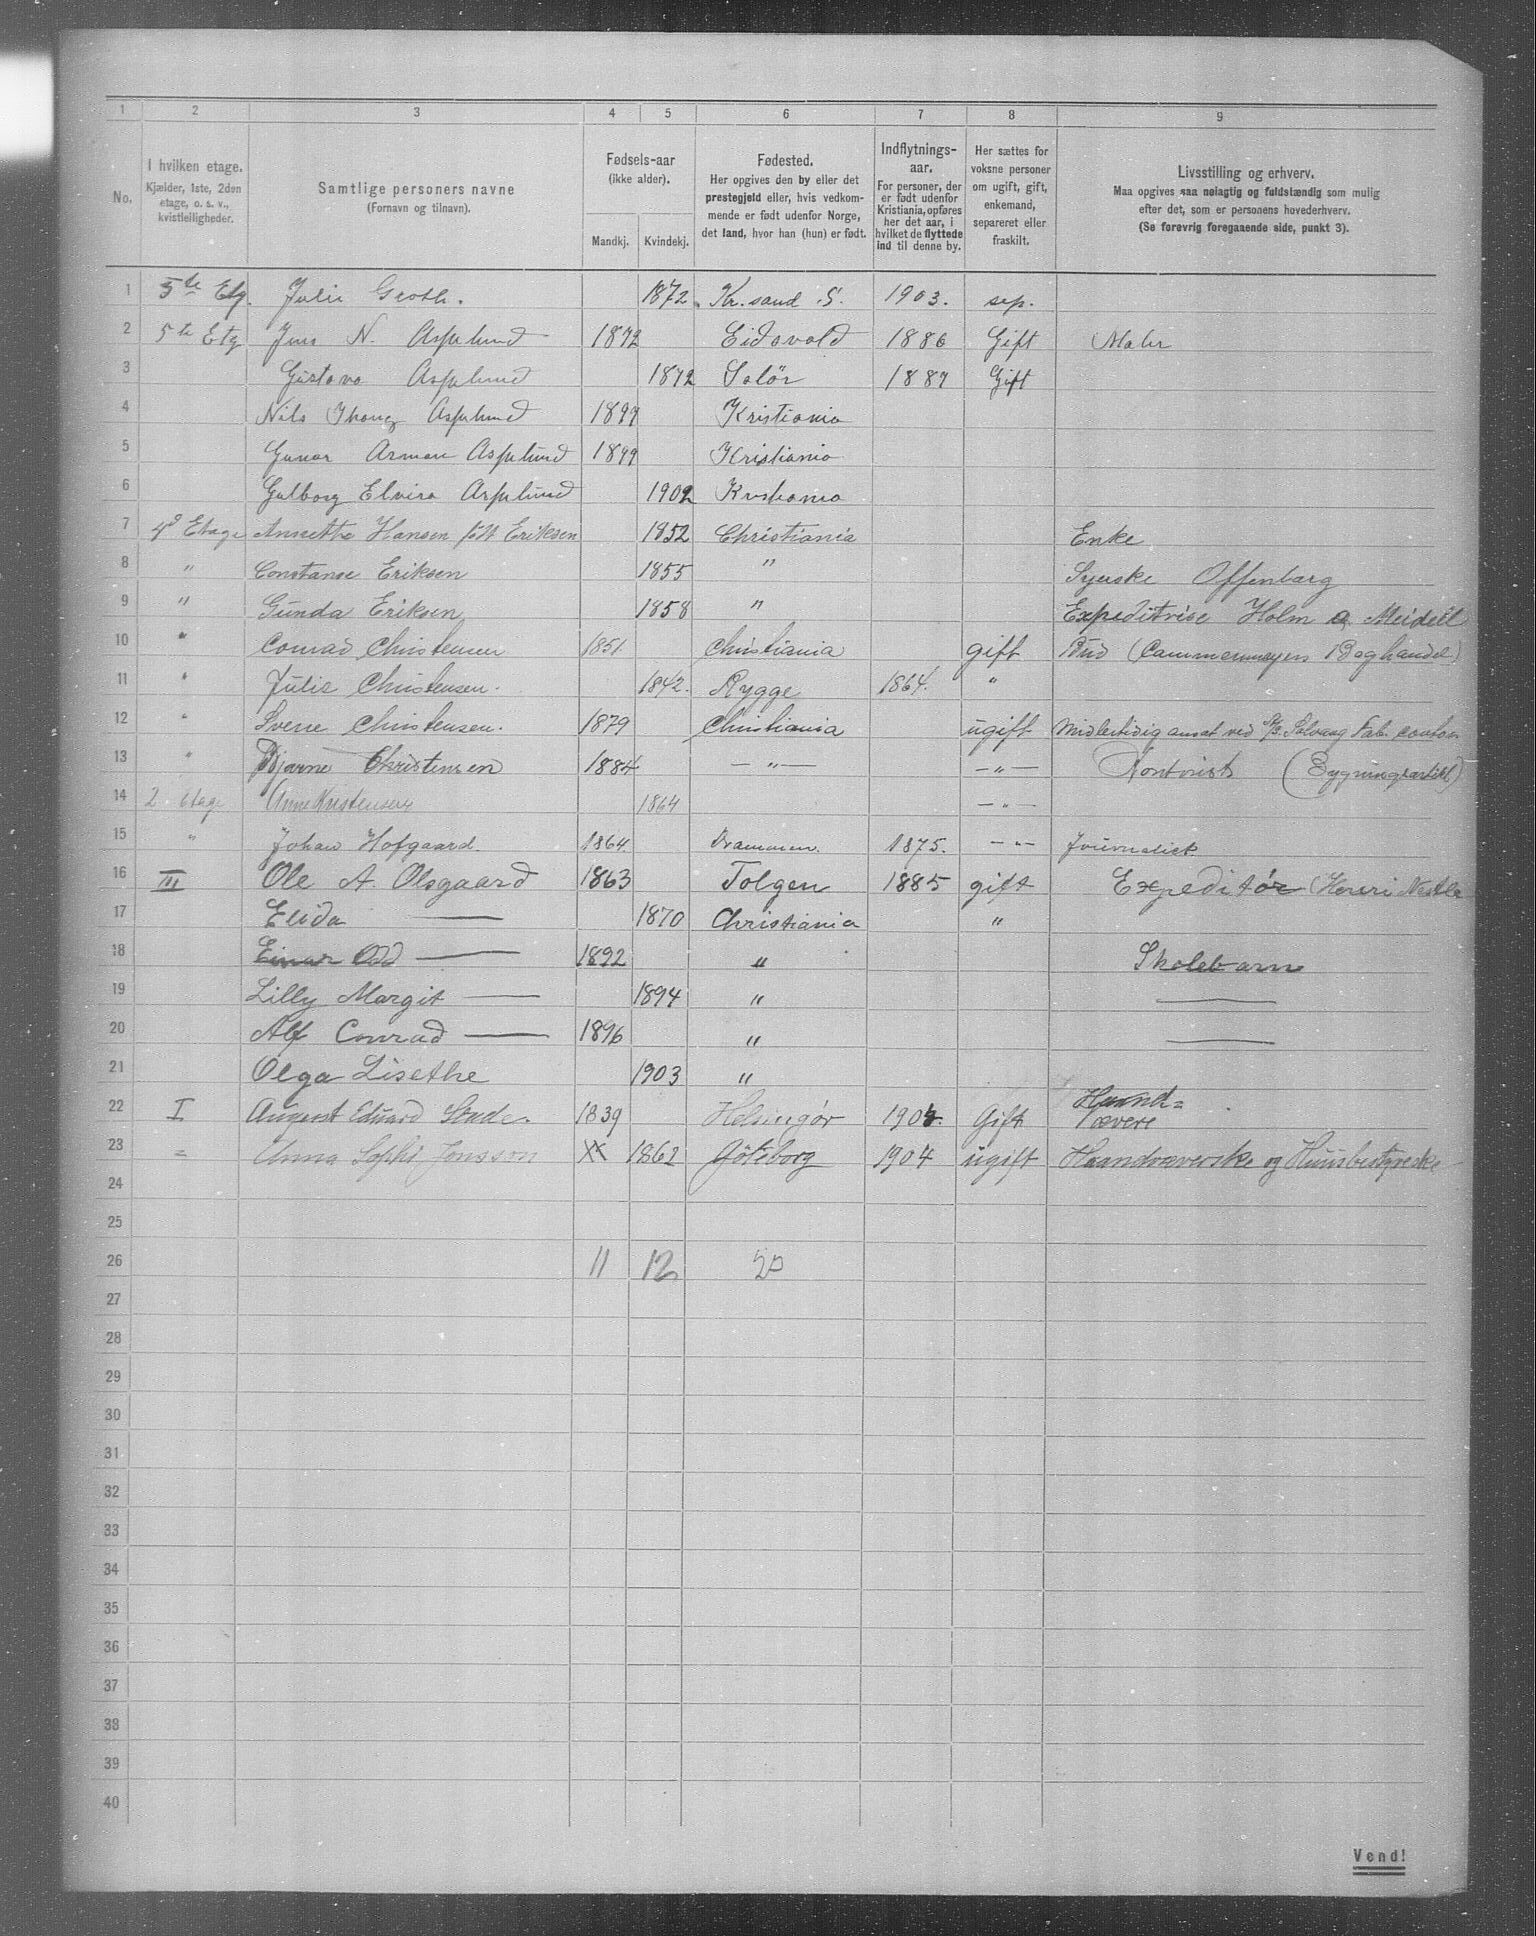 1 2 3 4 5 6 7 8 9
No.
I hvilken etage.
Kjælder, 1ste, 2den
etage, o. s. v.,
kvistleiligheder.
Samtlige personers navne
(Fornavn og tilnavn).
Fødsels-aar
(ikke alder).
Mandkj. Kvindekj.
Fødested.
Her opgives den by eller det
prestegjeld eller, hvis vedkom-
mende er født udenfor Norge,
det land, hvor han (hun) er født.
Indflytnings-
aar.
For personer, der
er født udenfor
Kristiania, opføres
her det aar, i
hvilket de flyttede
ind til denne by.
Her sættes for
voksne personer
om ugift, gift,
enkemand,
separeret eller
fraskilt.
Livsstilling og erhverv.
Maa opgives saa nøiagtig og fuldstændig som mulig
efter det, som er personens hovederhverv.
(Se forøvrig foregaaende side, punkt 3).
1 5te Etg. Julie Groth. 1872 Kr.sand S. 1903. sep.
2 5te Etg Jens N. Asplund 1872 Eidsvold 1886 Gift Maler
3 Gustava Asplund 1872 Solör 1887 Gift
4 Nils Asplund 1897 Kristiania
5 Gunar Arman Asplund 1899 Kristiania
6 Gulborg Elvira Asplund 1902 Kristiania
7 4d Etage Annette Hansen født Eriksen 1852 Christiania Enke
8 " Constanse Eriksen 1855 " Syerske Offenbarg
9 " Gunda Eriksen 1858 " Expeditrise Holm & Meidell
10 " Conrad Christensen 1851 Christiania gift Bud (Cammermeyers Boghandel)
11 " Julie Christensen. 1842. Rygge 1864. "
12 " Sverre Christensen. 1879 Christiania ugift Midlertidig ansat ved A/S. Solvang Fab. contor
13 " Bjarne Christensen 1884 — " — — " — Kontorist (Bygningsartikl)
14 2 etage Anne Kristensen 1864 — " —
15 " Johan Hofgaard. 1864 Drammen. 1875. — " — Journalist
16 III Ole A. Olsgaard 1863 Tolgen 1885 gift Expeditør (Henri Nestle
17 Elida — 1870 Christiania "
18 Einar Odd — 1892 " Skolebarn
19 Lilly Margit — 1894 " —
20 Alf Conrad — 1896 " —
21 Olga Lisethe 1903 "
22 I August Eduard 1839 Helsingør 1904. Gift Haand=
væver
23 = Anna Sophi Jonsson 1862 Göteborg 1904 ugift Haandvæverske og Huusbestyreske
24
25
26 11 12
27
28
29
30
31
32
33
34
35
36
37
38
39
40
Vend!